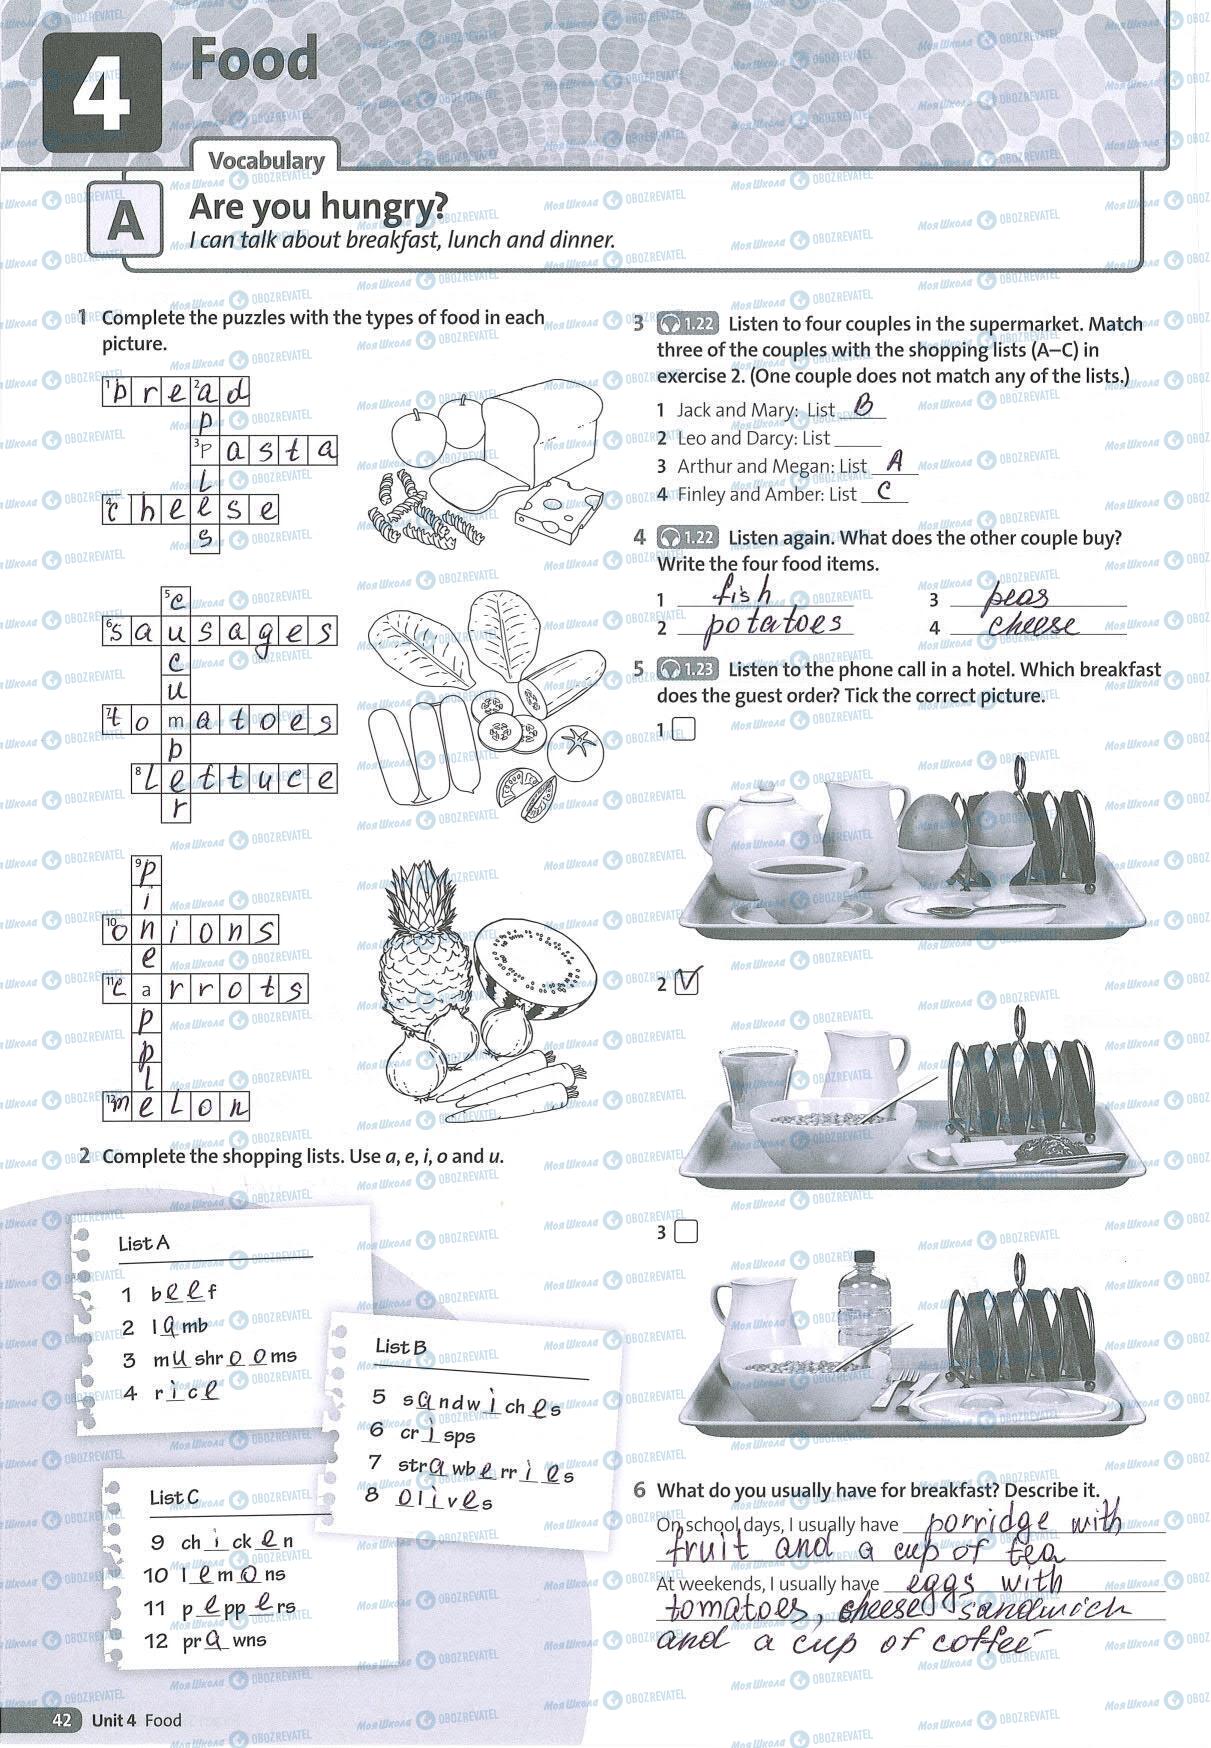 4
Food
Vocabulary
A
Are you hungry?
I can talk about breakfast, lunch and dinner.
1 Complete the puzzles with the types of food in each
picture.
1 b r e 2 a d
p
3 p a s t a
l
4 c h e e s e
s
5 c
6 s a u s a g e s
c
u
7 t o m a t o e s
b
8 l e t t u c e
r
9 p
i
10 o n i o n s
e
11 c a r r o t s
p
p
l
12 m e l o n
2 Complete the shopping lists. Use a, e, i, o and u.
List A
1 beef
2 lamb
3 mushrooms
4 rice
List B
5 sandwiches
6 crisps
7 strawberries
8 olives
List C
9 chicken
10 lemons
11 peppers
12 prawns
3 1.22 Listen to four couples in the supermarket. Match
three of the couples with the shopping lists (A–C) in
exercise 2. (One couple does not match any of the lists.)
1 Jack and Mary: List B
2 Leo and Darcy: List
3 Arthur and Megan: List A
4 Finley and Amber: List C
4 1.22 Listen again. What does the other couple buy?
Write the four food items.
1 fish 3 peas
2 potatoes 4 cheese
5 1.23 Listen to the phone call in a hotel. Which breakfast
does the guest order? Tick the correct picture.
1
2 V
3
6 What do you usually have for breakfast? Describe it.
On school days, I usually have porridge with
fruit and a cup of tea
At weekends, I usually have eggs with
tomatoes, cheese sandwich
and a cup of coffee
42 Unit 4 Food
Моя Школа OBOZREVATEL